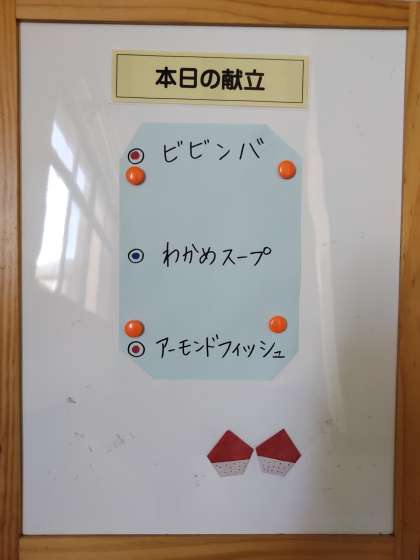 本日の献立
ビビンバ
わかめスープ
アーモンドフィッシュ